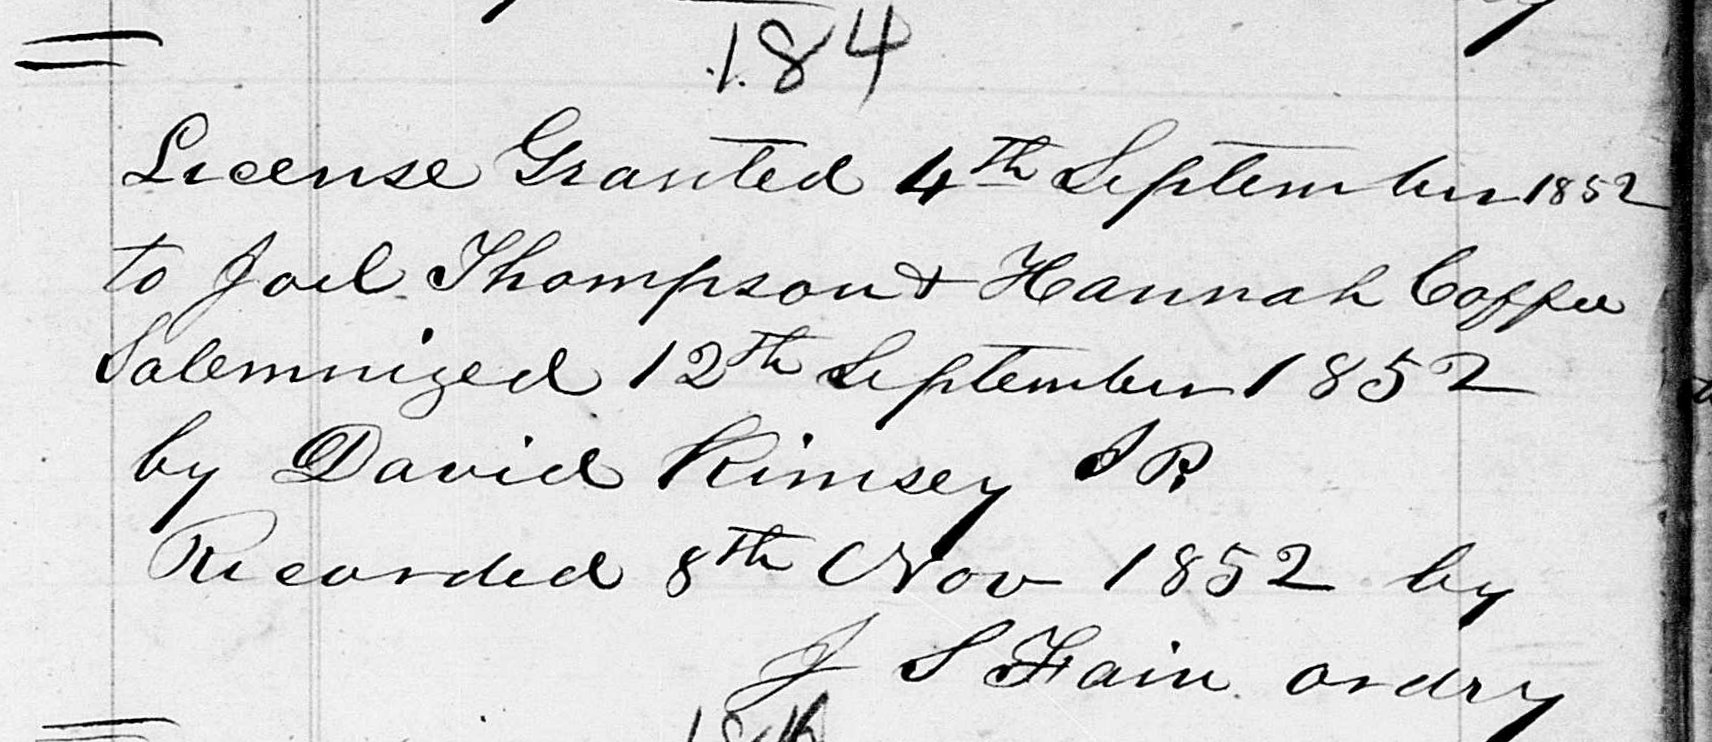 184
License Granted 4th September 1852
to Joel Thompson & Hannah Coffee
Solemnized 12th September 1852
by David Kimsey JP.
Recorded 8th Nov 1852 by
J S Fain ordry